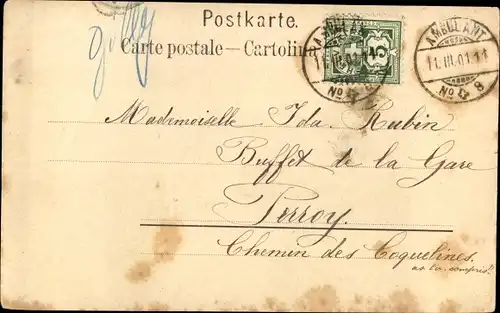 Postkarte.
Carte postale — Cartolina
AMBULANT
11.III.01.11
No 4 8
5
AMBULANT
11.III.01
No 4
Mademoiselle Ida Rubin
Buffet de la Gare
Perroy.
Chemin des Coquelines.
as-tu compris?